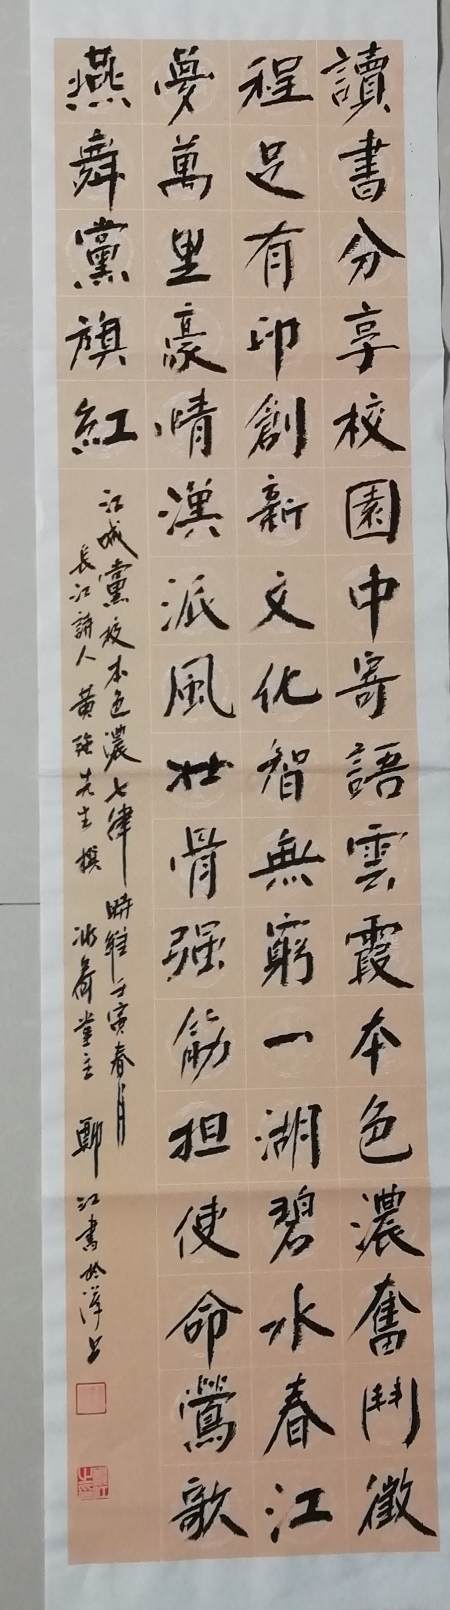 讀書分享校園中寄語雲霞本色濃奮鬥徵
程足有印創新文化智無窮一湖碧水春江
夢萬里豪情漢派風壯骨强筋担使命鶯歌
燕舞黨旗紅
江城黨校本色濃七律 時維壬寅春月
長江詩人黄強先生撰 沐荷堂主 鄭江書於漢上